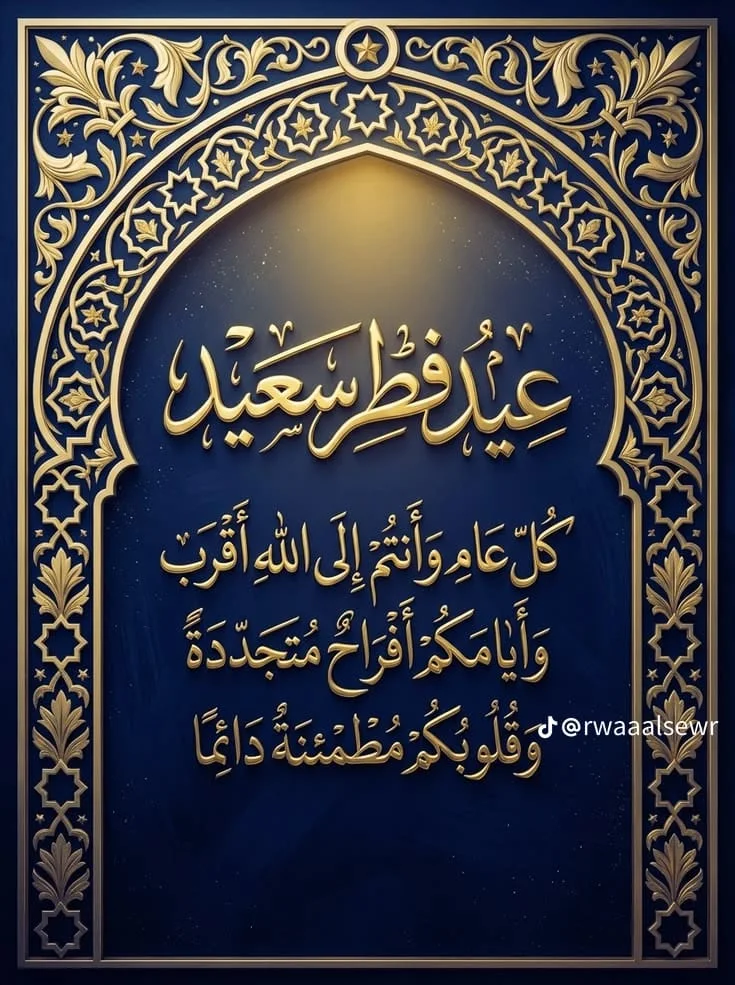 عِيدُ فِطْرٍ سَعَيْد
كُلّ عَامِ وَأَنتُمْ إِلَى اللهِ أَقْرَبَ
وَأَيامَكُمْ أَفْرَاحٌ مُتَجَدّدَةً
وَقُلُوبُكُمْ مُطْمْئنَةٌ دَائِمًا
@rwaaalsewr